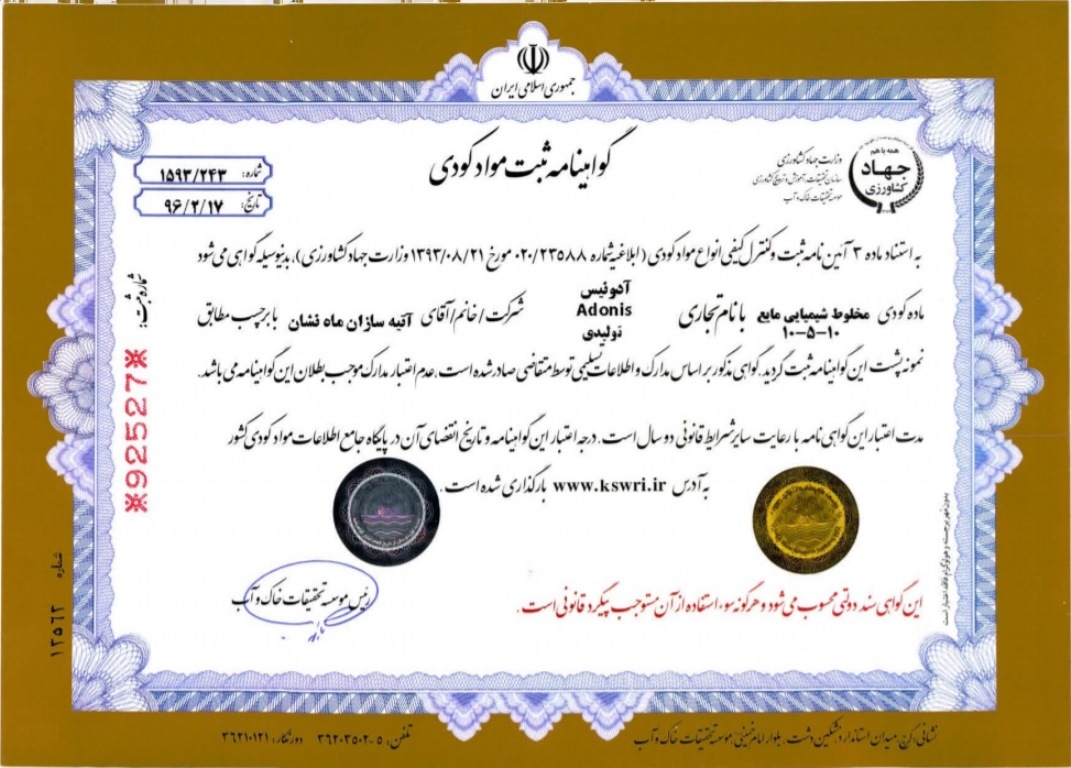 جمهوری اسلامی ایران
همه با هم
جهاد
کشاورزی
وزارت جهاد کشاورزی
سازمان تحقیقات، آموزش و ترویج کشاورزی
موسسه تحقیقات خاک و آب
گواهینامه ثبت مواد کودی
شماره: ۱۵۹۳/۲۴۳
تاریخ: ۹۶/۲/۱۷
به استناد ماده ۳ آئین نامه ثبت و کنترل کیفی انواع مواد کودی (ابلاغیه شماره ۰۲۰/۲۳۵۸۸ مورخ ۱۳۹۳/۰۸/۲۱ وزارت جهاد کشاورزی)، بدینوسیله گواهی می شود
ماده کودی مخلوط شیمیایی مایع ۱۰-۵-۱۰ با نام تجاری آدونیس Adonis تولیدی شرکت / خانم / آقای آتیه سازان ماه نشان با برچسب مطابق
نمونه پشت این گواهینامه ثبت گردید. گواهی مذکور بر اساس مدارک و اطلاعات تسلیمی توسط متقاضی صادر شده است. عدم اعتبار مدارک موجب بطلان این گواهینامه می باشد.
مدت اعتبار این گواهی نامه با رعایت سایر شرایط قانونی دو سال است. درجه اعتبار این گواهینامه و تاریخ انقضای آن در پایگاه جامع اطلاعات مواد کودی کشور
به آدرس www.kswri.ir بارگذاری شده است.
این گواهی سند دولتی محسوب می شود و هرگونه سوء استفاده از آن مستوجب پیگرد قانونی است.
رئیس موسسه تحقیقات خاک و آب
شماره ثبت:
※92527※
شماره ۱۲۵۶۳
بدون مهر برجسته و هولوگرام فاقد اعتبار است
نشانی: کرج، میدان استاندارد، مشکین دشت، بلوار امام خمینی، موسسه تحقیقات خاک و آب
تلفن: ۵-۳۶۲۰۳۵۰۲ دورنگار: ۳۶۲۱۰۱۲۱